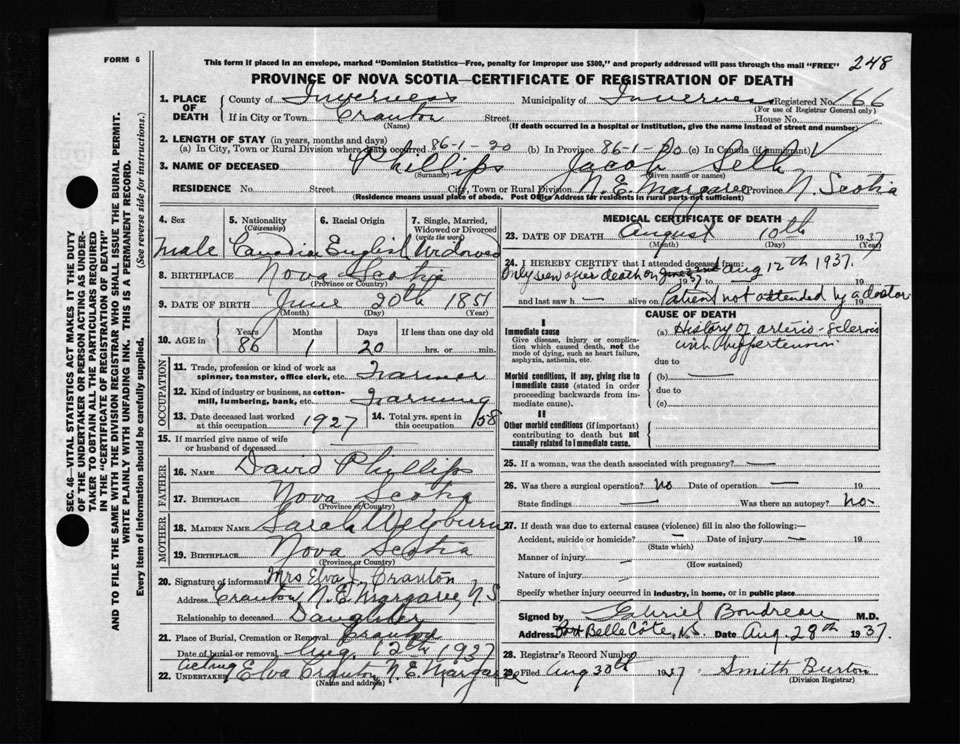 FORM 6
This form if placed in an envelope, marked "Dominion Statistics—Free, penalty for improper use $300," and properly addressed will pass through the mail "FREE"
248
PROVINCE OF NOVA SCOTIA—CERTIFICATE OF REGISTRATION OF DEATH
1. PLACE OF DEATH
County of Inverness Municipality of Inverness Registered No. 166
(For use of Registrar General only)
If in City or Town Cranton Street House No.
(Name) (If death occurred in a hospital or institution, give the name instead of street and number)
2. LENGTH OF STAY (in years, months and days)
(a) In City, Town or Rural Division where death occurred 86-1-20 (b) In Province 86-1-20 (c) In Canada (if immigrant)
3. NAME OF DECEASED Phillips Jacob Seth
(Surname) (Given name or names)
RESIDENCE No. Street City, Town or Rural Division N. E. Margaree Province N. Scotia
(Residence means usual place of abode. Post Office Address for residents in rural parts not sufficient)
4. Sex 5. Nationality (Citizenship) 6. Racial Origin 7. Single, Married, Widowed or Divorced (write the word)
Male Canadian English Widowed
8. BIRTHPLACE Nova Scotia
(Province or Country)
9. DATE OF BIRTH June 20th 1851
(Month) (Day) (Year)
10. AGE in Years Months Days If less than one day old
86 1 20 hrs. or min.
OCCUPATION
11. Trade, profession or kind of work as spinner, teamster, office clerk, etc. Farmer
12. Kind of industry or business, as cotton-mill, lumbering, bank, etc. Farming
13. Date deceased last worked at this occupation 1927
14. Total yrs. spent in this occupation 58
15. If married give name of wife or husband of deceased
FATHER
16. NAME David Phillips
17. BIRTHPLACE Nova Scotia
(Province or Country)
MOTHER
18. MAIDEN NAME Sarah
19. BIRTHPLACE Nova Scotia
(Province or Country)
20. Signature of informant Mrs Elva J. Cranton
Address Cranton, N. E. Margaree, N S
Relationship to deceased Daughter
21. Place of Burial, Cremation or Removal Cranton
Date of burial or removal Aug. 12th 1937
acting
22. UNDERTAKER Elva Cranton, N. E. Margaree
(Name and address)
MEDICAL CERTIFICATE OF DEATH
23. DATE OF DEATH August 10th 1937
(Month) (Day) (Year)
24. I HEREBY CERTIFY that I attended deceased from:
Only seen after death on Aug 12th 1937.
1937 to 19
and last saw h alive on Patient not attended by a doctor
CAUSE OF DEATH
I
Immediate cause
Give disease, injury or complication which caused death, not the mode of dying, such as heart failure, asphyxia, asthenia, etc.
(a) History of arterio-sclerosis
with hypertension
due to
Morbid conditions, if any, giving rise to immediate cause (stated in order proceeding backwards from immediate cause).
(b)
due to
(c)
II
Other morbid conditions (if important) contributing to death but not causally related to immediate cause.
25. If a woman, was the death associated with pregnancy?
26. Was there a surgical operation? No Date of operation 19
State findings Was there an autopsy? No
27. If death was due to external causes (violence) fill in also the following:—
Accident, suicide or homicide? Date of injury 19
(State which)
Manner of injury
(How sustained)
Nature of injury
Specify whether injury occurred in industry, in home, or in public place
Signed by Gabriel Boudreau M.D.
Address East Belle Côte, N.S. Date Aug. 28th 1937.
28. Registrar's Record Number
29. Filed Aug 30th 1937 Smith Burton
(Division Registrar)
SEC. 46—VITAL STATISTICS ACT MAKES IT THE DUTY
OF THE UNDERTAKER OR PERSON ACTING AS UNDER-
TAKER TO OBTAIN ALL THE PARTICULARS REQUIRED
IN THE "CERTIFICATE OF REGISTRATION OF DEATH"
AND TO FILE THE SAME WITH THE DIVISION REGISTRAR WHO SHALL ISSUE THE BURIAL PERMIT.
WRITE PLAINLY WITH UNFADING INK. THIS IS A PERMANENT RECORD.
Every item of information should be carefully supplied. (See reverse side for instructions.)